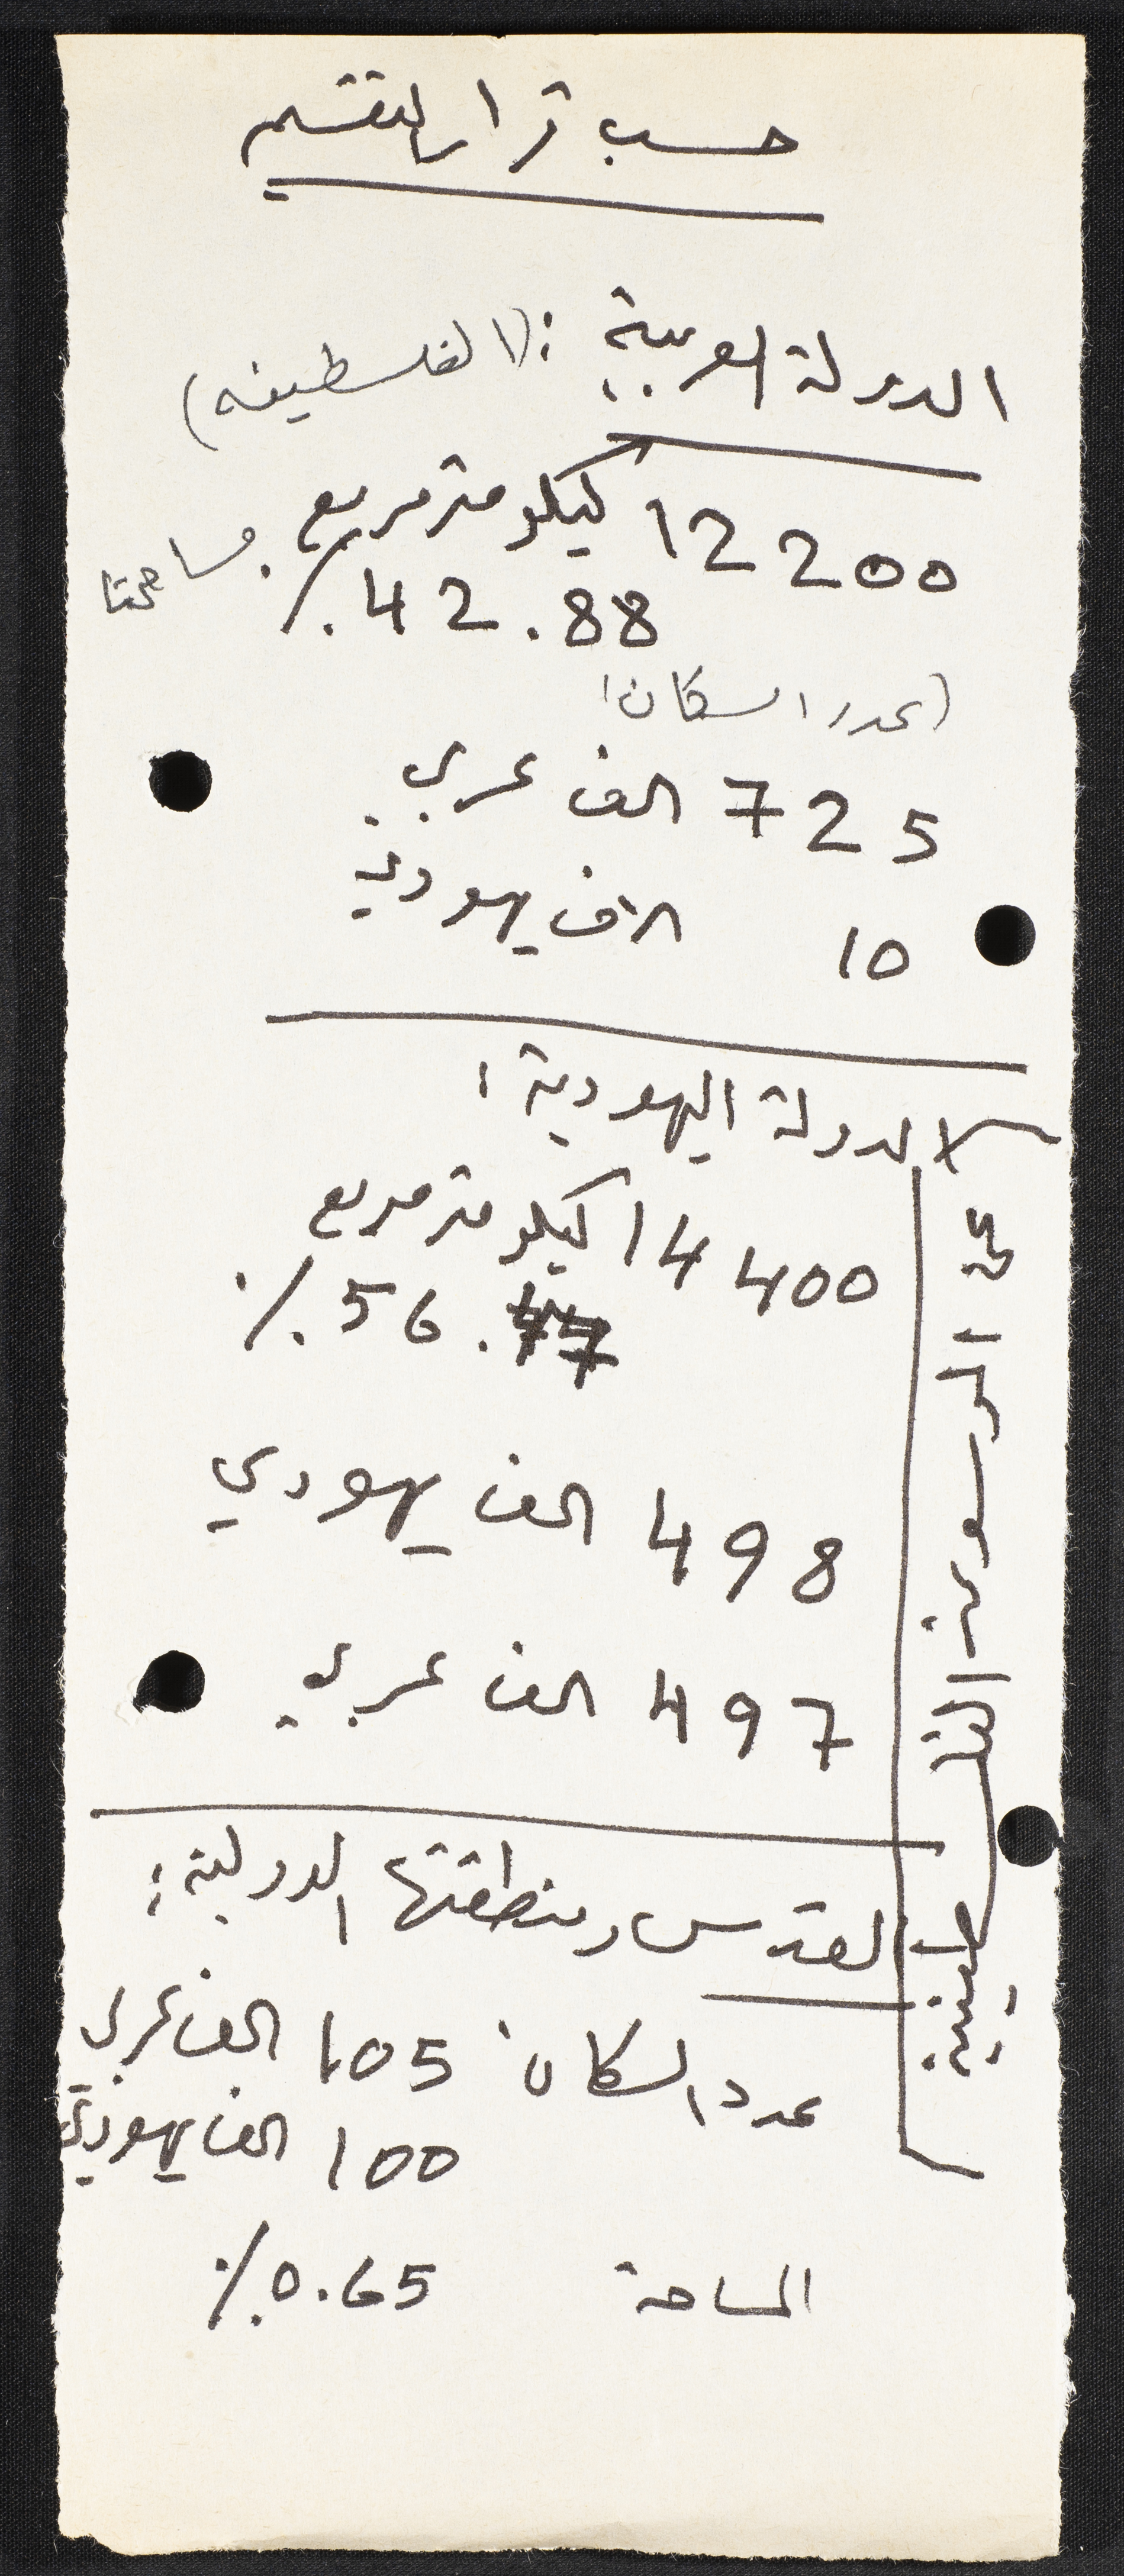 حسب قرار التقسيم
الدولة العربية : (الفلسطينية)
12200 كيلو متر مربع . مساحتها
42.88 %
(عدد السكان)
725 الف عربي
10 الاف يهودي
الدولة اليهودية :
14400 كيلو متر مربع
56.47 %
498 الف يهودي
497 الف عربي
القدس ومنطقتها الدولية :
عدد السكان 105 الف عربي
100 الف يهودي
المساحة 0.65 %
عن الموسوعة الفلسطينية